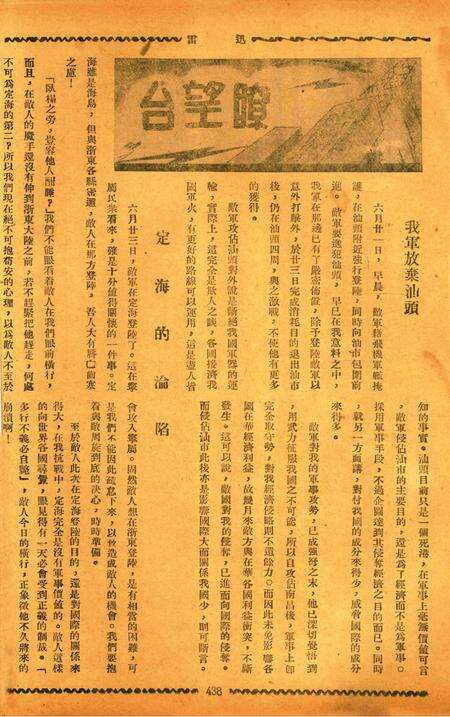 迅雷
瞭望台
我軍放棄汕頭
六月廿一日，早晨，敵軍藉飛機軍艦掩
護，在汕頭附近強行登陸，同時向汕市包圍前
進。敵軍要進犯汕頭，早已在我意料之中，
我軍在那邊已有了嚴密佈置，除予登陸敵軍以
意外打擊外，於廿三日完成消耗目的退出汕市
後，仍在汕頭四周，與之激戰，不使他有更多
的獲得。
敵軍攻佔汕頭對外說是斷絕我國軍器的運
輸，實際上，這完全是欺人之談。各國接濟我
國軍火，有更好的路線可以運用，這是盡人皆
知的事實。汕頭目前只是一個死港，在軍事上毫無價值可言
敵軍侵佔汕市的主要目的，還是為了經濟而不是為軍事。
採用軍事手段，不過企圖達到其侵奪經濟之目的而已。同時
，就另一方面講，對付我國的成分來得少，威脅國際的成分
來得多。
敵軍對我的軍事攻勢，已成強弩之末，他已深切覺悟到
，用武力征服我國之不可能，所以自攻佔南昌後，軍事上即
完全取守勢，對我經濟侵略則不遺餘力。而因此未免影響各
國在華經濟利益，故幾月來敵方與在華各國利益衝突，不斷
發生。這可以說，敵國對我的侵奪，已進而向國際的侵奪。
而侵佔汕市此後亦是影響國際大而關係我國少，則可斷言。
定海的淪陷
六月廿三日，敵軍在定海登陸了。這在隸
屬民衆看來，確是十分值得關懷的一件事。定
海雖是海島，但與浙東各縣密邇，敵人在那方登陸，吾人大有唇亡齒寒
之慮！
「臥榻之旁，豈容他人酣睡？」我們不能眼看着敵人在我們眼前橫行，
而且，在敵人的魔手還沒有伸到浙東大陸之前，若不趕緊把他趕走，何處
不可為定海的第二？所以我們現在絕不可抱苟安的心理，以為敵人不至於
會攻入隸屬。固然敵人想在浙東登陸，是有相當的困難，可
是我們不能因此疏忽下來，以致造成敵人的機會。我們要抱
着與敵周旋到底的決心，時時準備。
至於敵人此次在定海登陸的目的，還是對國際的關係來
得大，在我抗戰中，定海完全是沒有軍事價值的。敵人這樣
的向世界各國尋釁，眼見得有一天必會受到正義的制裁。「
多行不義必自斃」，敵人今日的橫行，正象徵他不久將來的
崩潰啊！
438